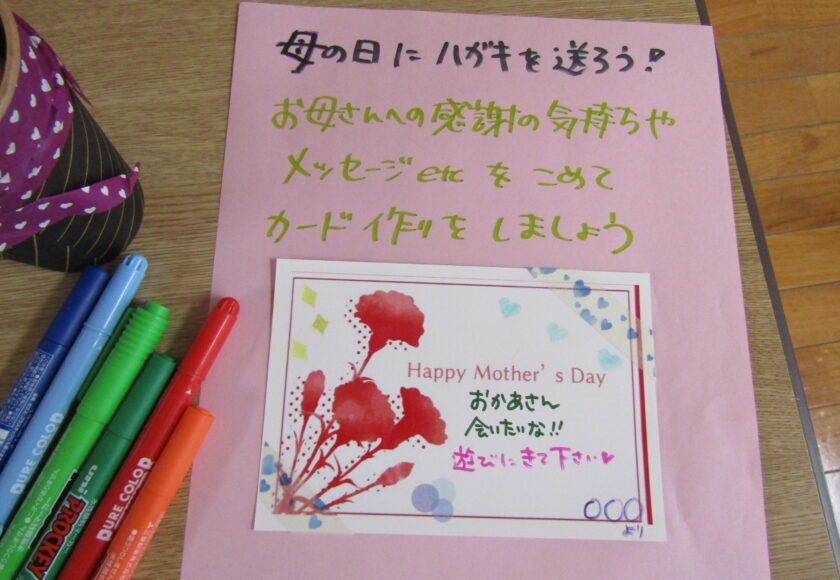 母の日にハガキを送ろう!
お母さんへの感謝の気持ちや
メッセージetcをこめて
カード作りをしましょう
Happy Mother's Day
おかあさん
会いたいな!!
遊びにきて下さい♥
〇〇〇
より
PURE COLOR
PROCKEY
PURE COLOR